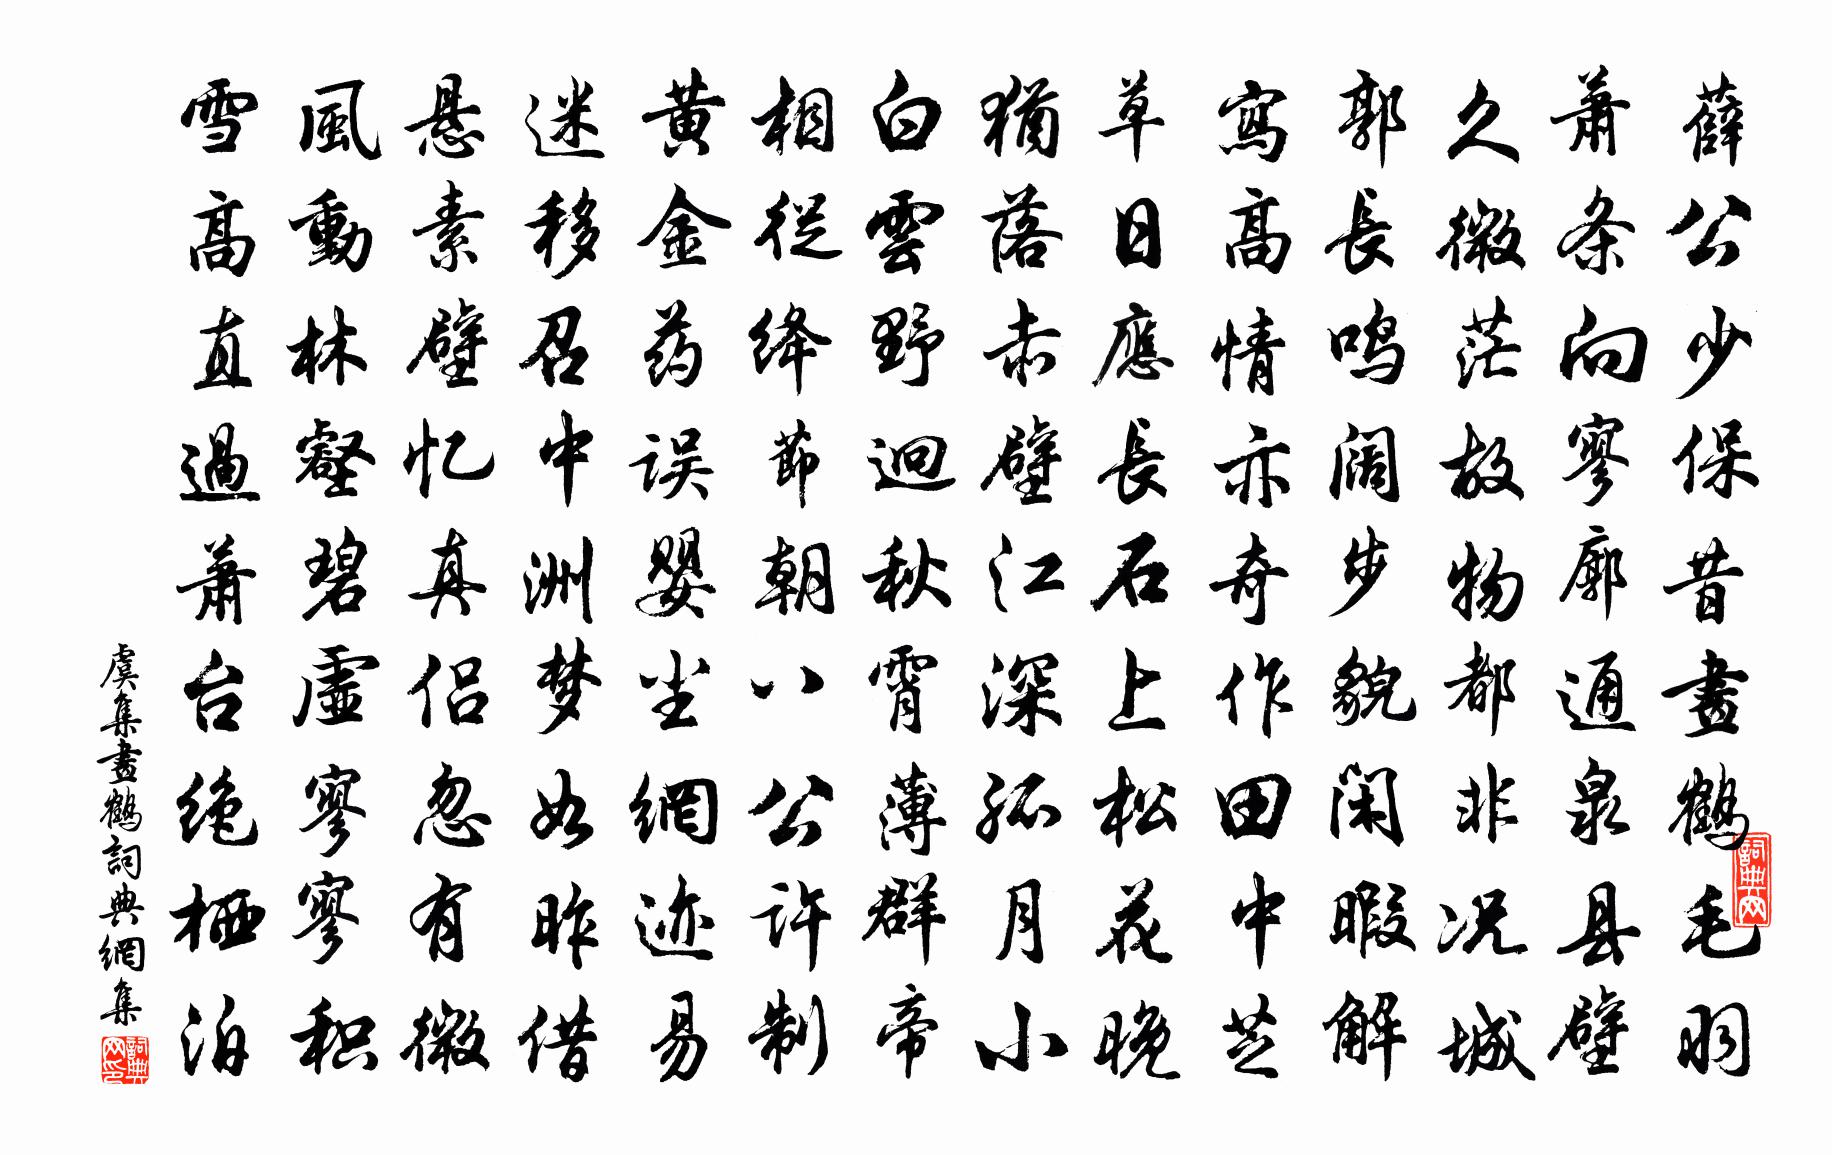 薛公少保昔畫鶴毛羽
萧条向寥廓通泉县壁
久微茫故物都非况城
郭長鸣阔步貌闲暇解
寫高情亦奇作田中芝
草日應長石上松花晚
犹落赤壁江深孤月小
白雲野迥秋霄薄群帝
相從绛節朝八公許制
黄金药误婴尘網迹易
迷移召中洲梦如昨借
悬素壁忆真侣忽有微
風動林壑碧虚寥寥积
雪高直過萧台绝栖泊
虞集畫鶴詞典網集
詞典网
詞典网印